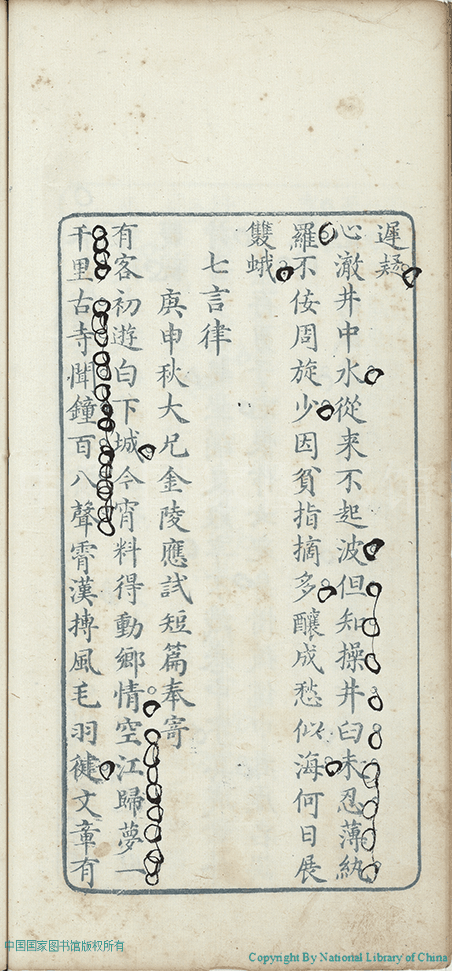 遲疑
心澈井中水從来不起波但知操井臼未忍薄紈
羅不佞周旋少因貧指摘多釀成愁似海何日展
雙蛾
七言律
庚申秋大兄金陵應試短篇奉寄
有客初遊白下城今宵料得動鄉情空江歸夢一
千里古寺聞鐘百八聲霄漢摶風毛羽健文章有
中国国家图书馆版权所有
Copyright By National Library of China